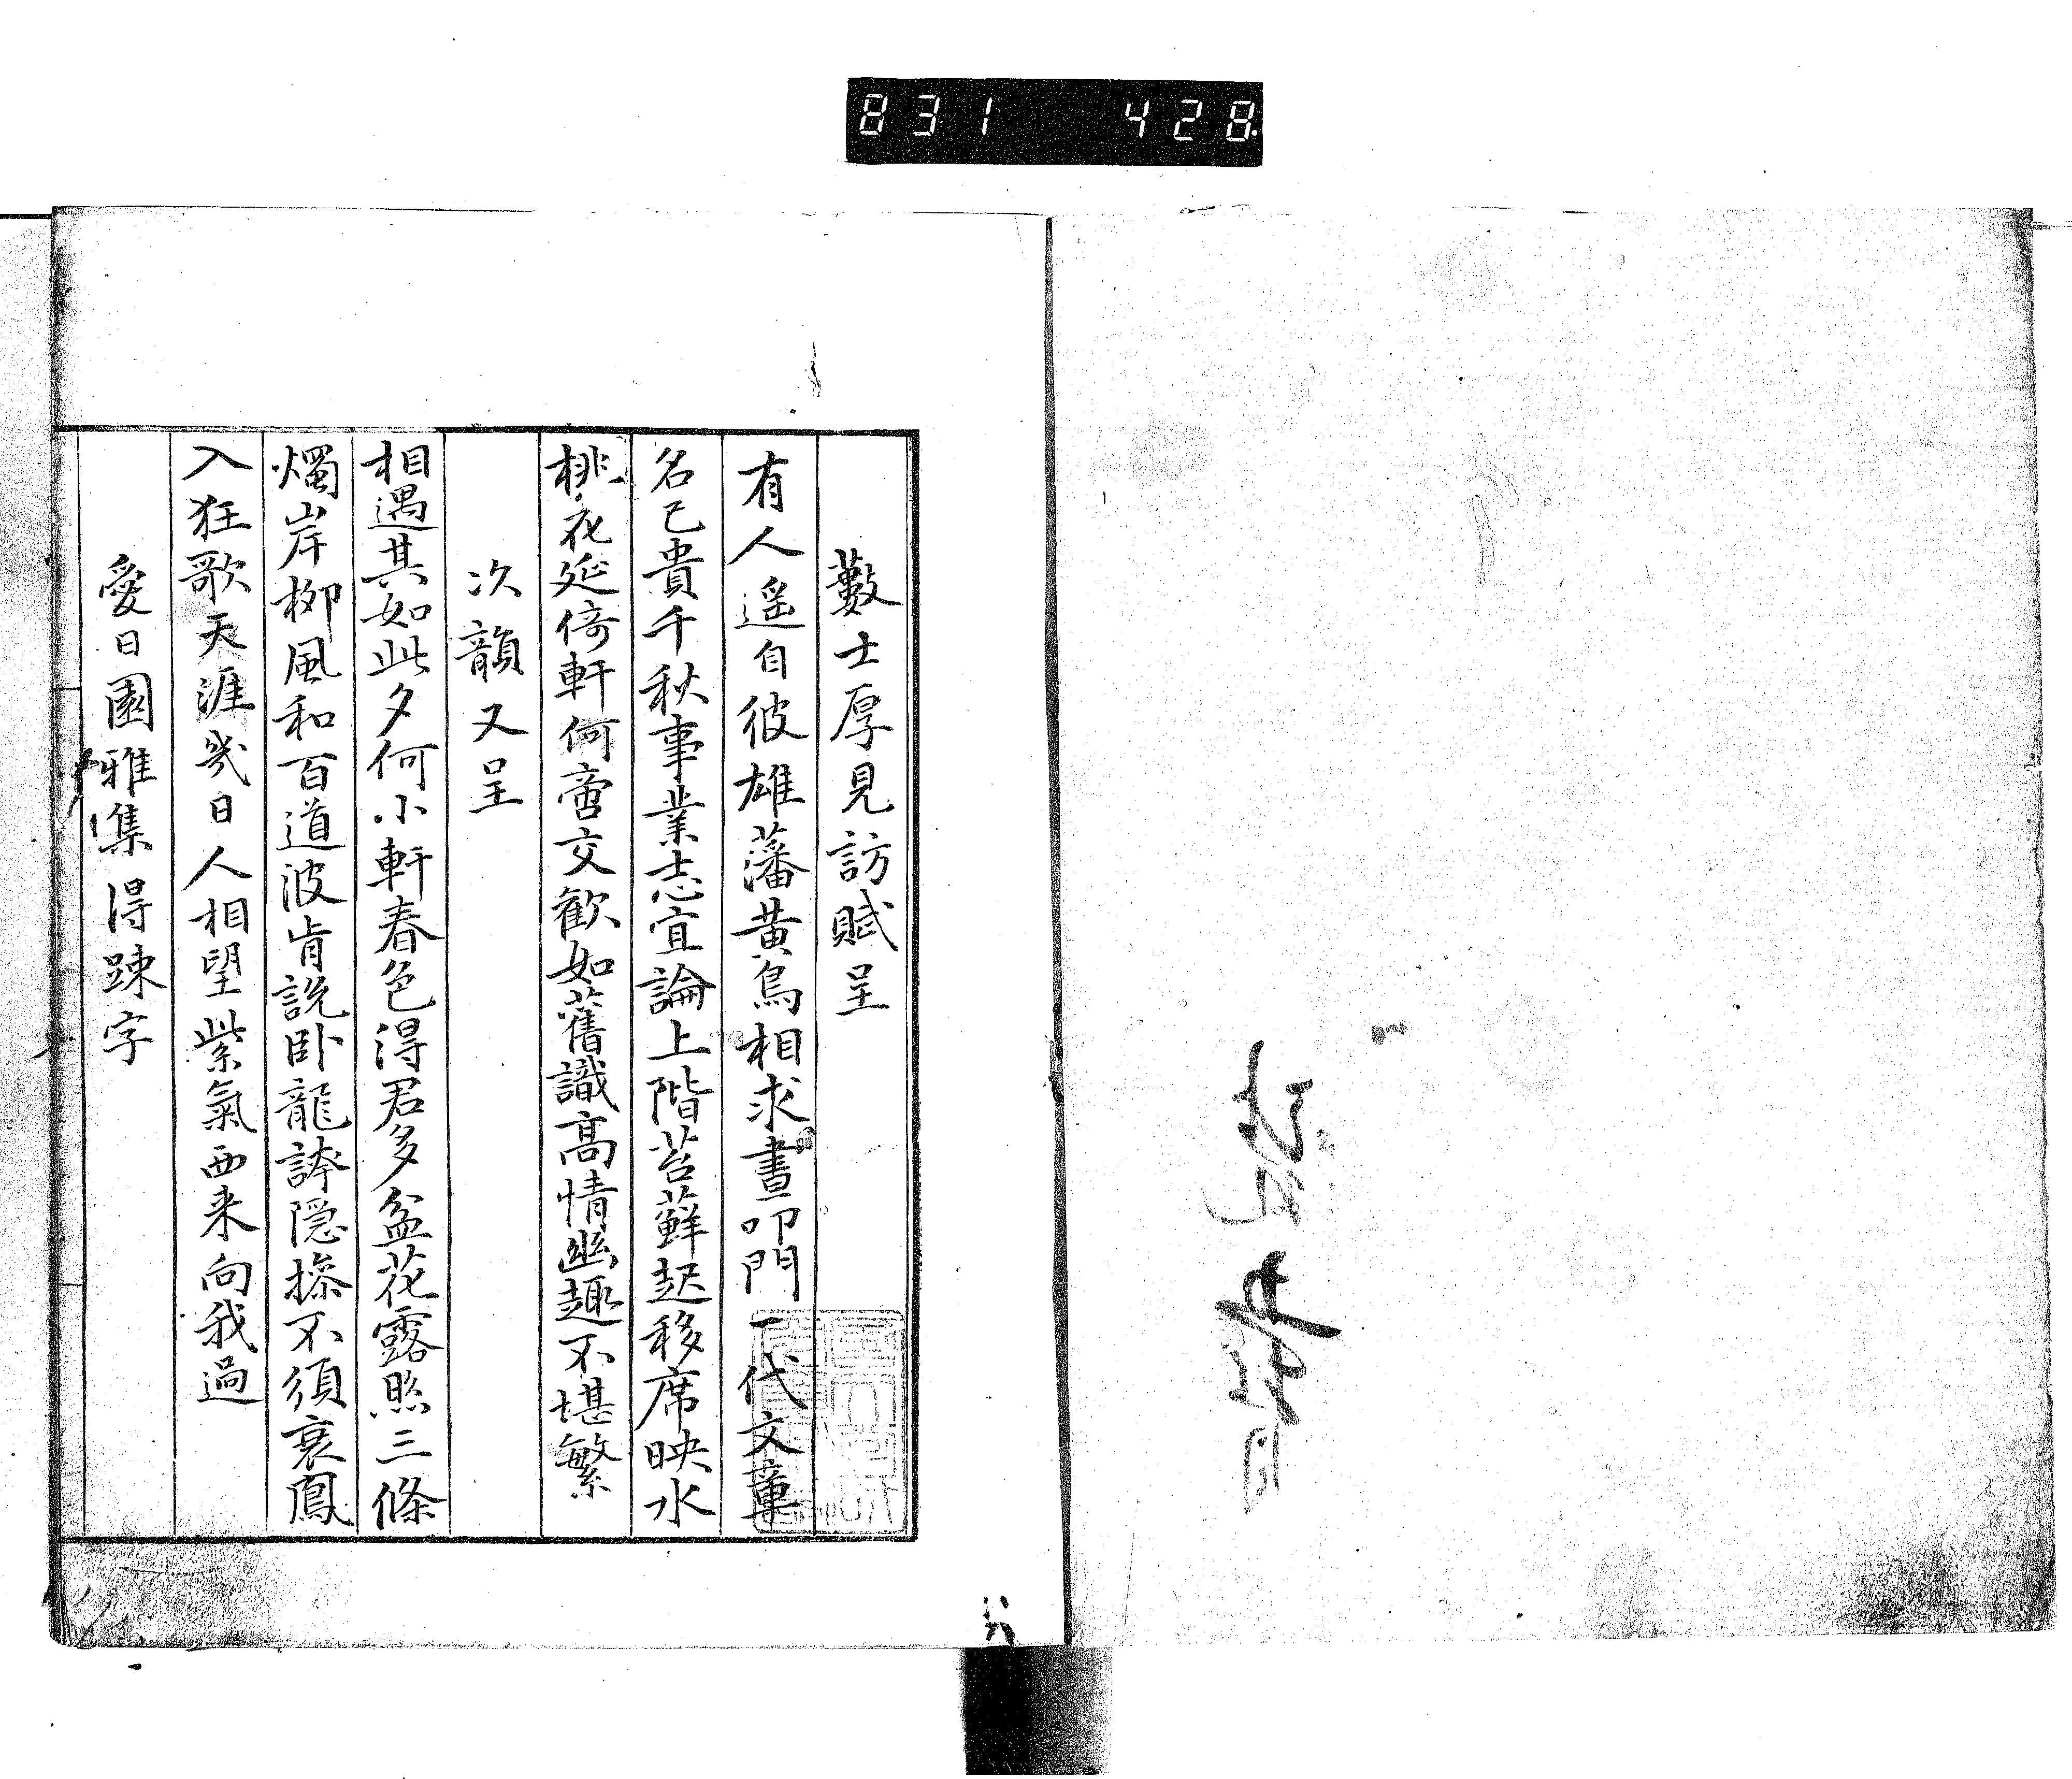 831 428
藪士厚見訪賦呈
有人遥自彼雄藩黄鳥相求晝叩門一代文藁
名已貴千秋事業志宜論上階苔蘚起移席映水
桃花延倚軒何啻交歡如舊識高情幽趣不堪繁
次韻又呈
相遇其如此夕何小軒春色得君多盆花露照三條
燭岸柳風和百道波肯説卧龍誇隠操不須衰鳳
入狂歌天涯幾日人相望紫氣西来向我過
愛日園雅集得踈字